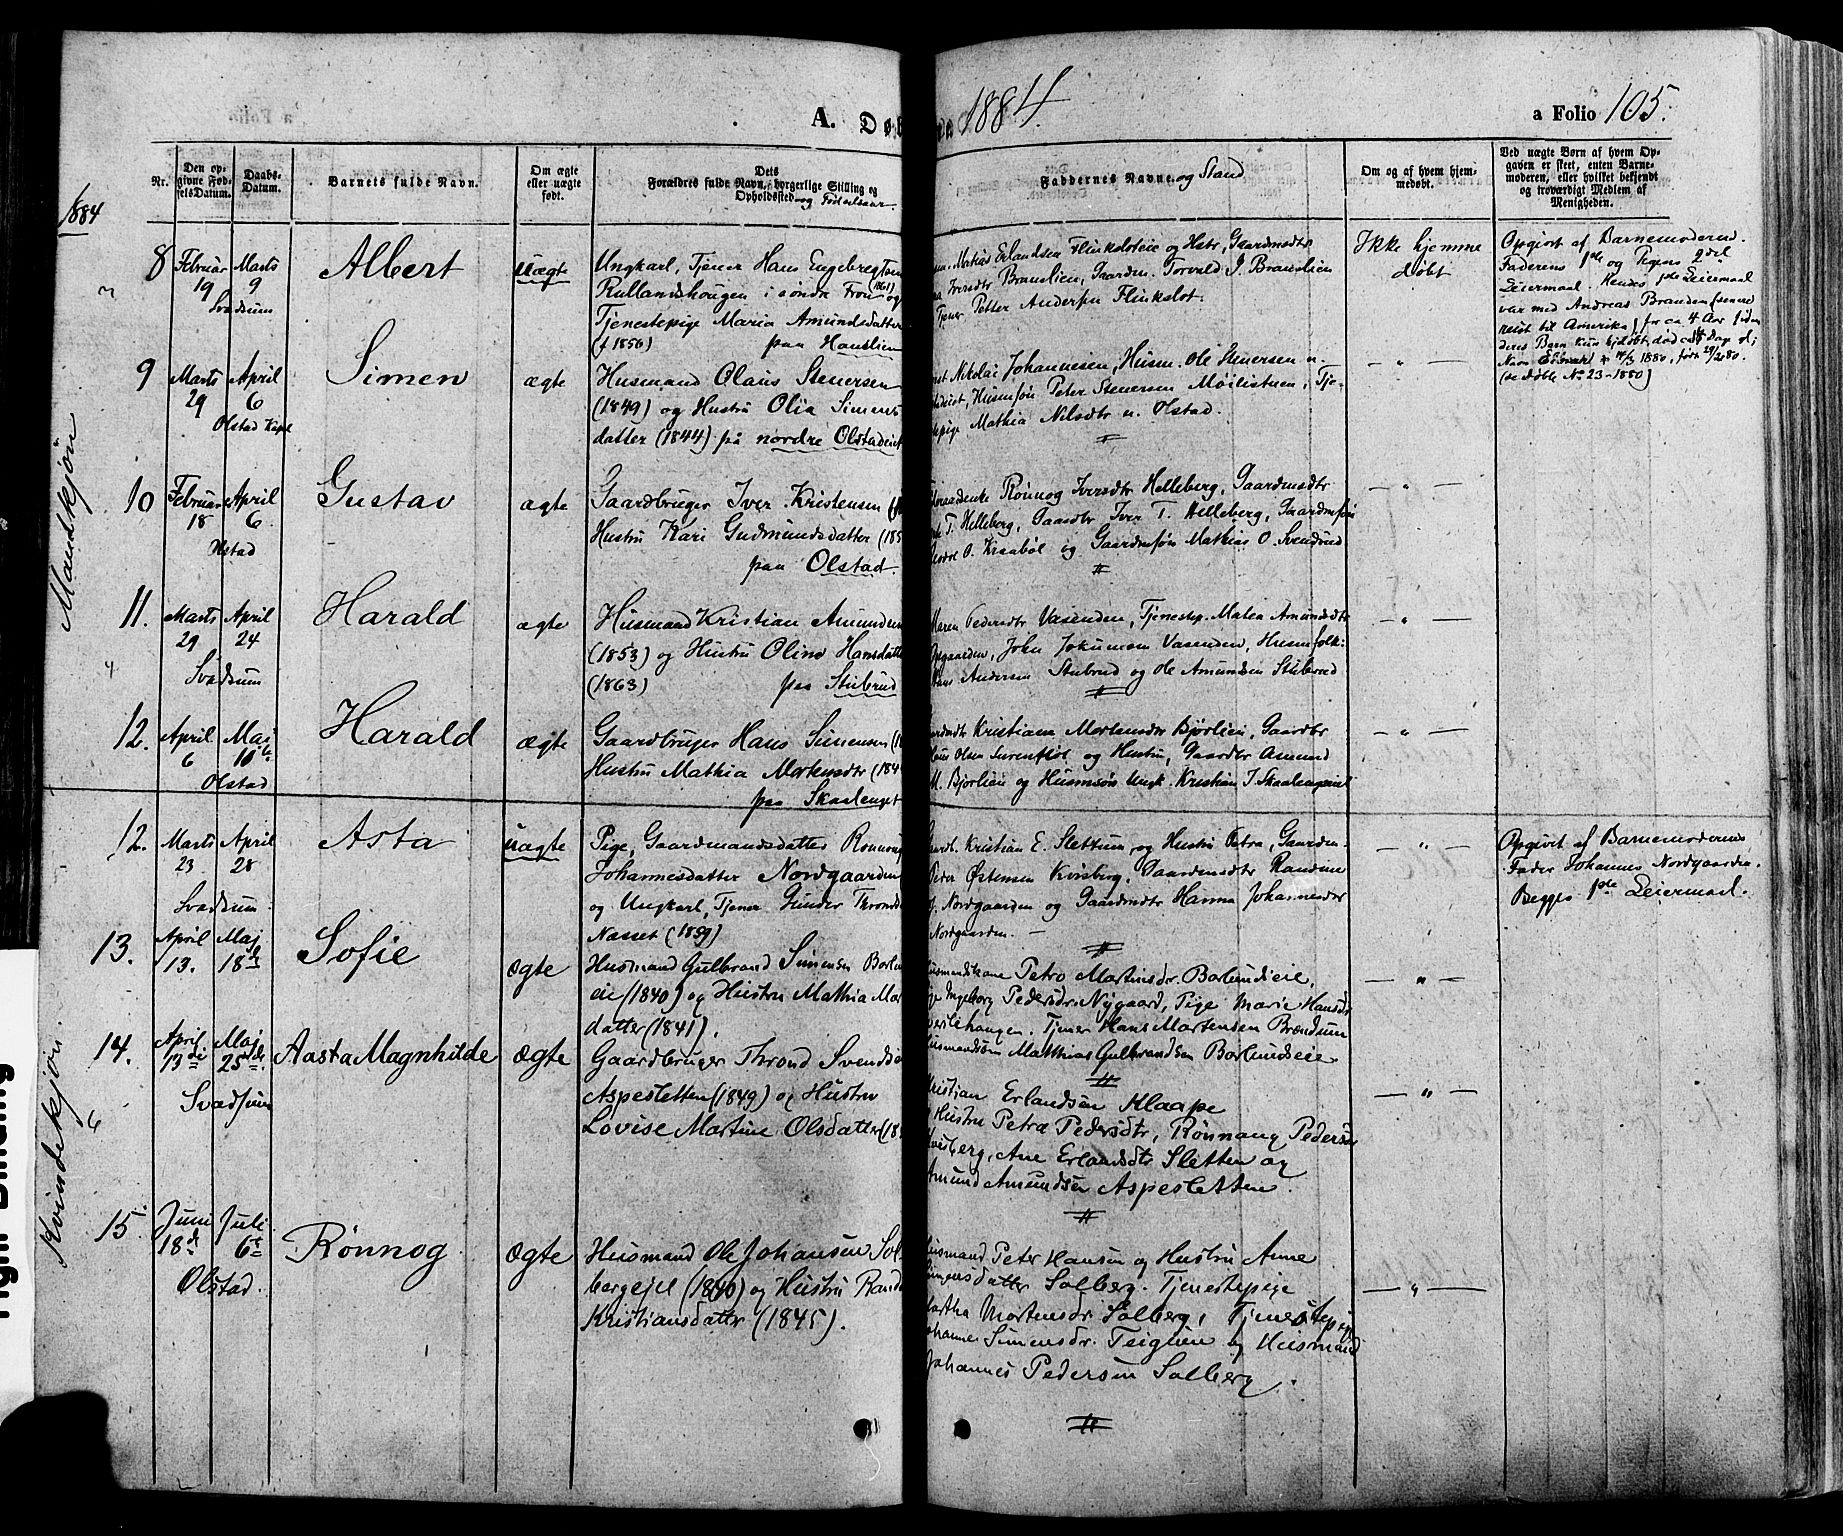 A. Døb
1884.
a Folio 105.
Nr.
Den op-
givne Fød-
selsDatum.
Daabs-
Datum.
Barnets fulde Navn.
Om ægte
eller uægte
født.
Dets
Forældres fulde Navn, borgerlige Stilling og
Opholdssted og Fødselsaar.
Faddernes Navne og Stand
Om og af hvem hjem-
medøbt.
Ved uægte Børn af hvem Op-
gaven er skeet, enten Barne-
moderen, eller hvilket bekjendt
og troværdigt Medlem af
Menigheden.
1884
Mandkjøn
8 Februar 19 Marts 9
Svadsum
Albert
uægte
Ungkarl, Tjener Hans Engebregtsen
Rullandshaugen i søndre Fron (1861) og
Tjenestepige Maria Amundsdatter
(f 1856) paa Hanslien
Matias Erlandsen Flinksloteie og Hstr, Gaardmdtr
Iversdtr Branslien, Gaardm. Torvald J. Branslien
Tjener Petter Andersen Flinkslot.
Ikke hjemme
døbt
Opgivet af Barnemoderen.
Faderens 1ste og Pigens 2det
Leiermaal. Hendes 1ste Leiermaal
var med Andreas Branden (senere
reist til Amerika) for ca 4 Aar siden
(se døbte No 23-1880)
9 Marts 29 April 6
Olstad Kapel
Simen
ægte
Husmand Olaus Stenersen
(1849) og Hustru Olia Simens
datter (1844) på nordre Olstadeiet
Nikolai Johannesen, Husm. Ole Stenersen n.
Husmsøn Peter Stenersen Moilistuen, Tje-
Mathia Nilsdtr n. Olstad.
- " -
10 Februar 18 April 6
Olstad
Gustav
ægte
Gaardbruger Iver Kristensen
Hustru Kari Gudmundsdatter (185
paa Olstad.
Rønnog Iversdtr Helleberg, Gaardmdtr
T. Helleberg, Gaardbr Iver T. Helleberg, Gaardmsøn
O. Kraabøl og Gaardmsøn Mathias O. Svendsrud
- " -
11. Marts 29 April 24
Svadsum
Harald
ægte
Husmand Kristian Amundsen
(1853) og Hustru Oline Hansdatter
(1863) paa Stubrud
Maren Pedersdtr Vasenden, Tjenestep. Malia Amundsdtr
John Jokumsen Vasenden, Husmfolk
Andersen Stubrud og Ole Amundsen Stubrud
- " -
12. April 6 Maj 18de
Olstad
Harald
ægte
Gaardbruger Hans Simensen
Hustru Mathia Mortensdtr (184
paa Skaalenget
Kristiane Mortensdr Bjørlien, Gaardbr
Olsen Surenflot og Hustru, Gaardbr Amund
M. Bjørlien og Husmsøn Ungk. Kristian J. Skaalengeiet
- " -
Kvindekjøn
12. Marts 23 April 28
Svadsum
Asta
uægte
Pige, Gaardmandsdatter Rønnog
Johannesdatter Nordgaarden
og Ungkarl, Tjener Gunder Thronds
Næsset (1859)
Gaardb. Kristian E. Slettum og Hustru Petra, Gaardm.
Peder Østensen Kvisberg, Gaardmdtr Randine
J. Nordgaarden og Gaardmdtr. Hanna Johannesdtr
Nordgaarden.
- " -
Opgivet af Barnemoderens
Fader Johannes Nordgaarden
Begges 1ste Leiermaal.
13. April 13. Maj 18de
Sofie
ægte
Husmand Gulbrand Simensen Borlunds-
eie (1840) og Hustru Mathia Mar
datter (1841).
Husmandskone Petro Martinsdr. Borlundseie,
Pige Ingeborg Pedersdr. Nygaard, Pige Marie Hansdr
Tjener Hans Martensen Brændsum
Husmandssøn Matthias Gulbrandsen Borlundseie
- " -
14. April. 13de Maj 25de.
Svadsum
Aasta Magnhilde
ægte
Gaardbruger Thrond Svendsen
Aspesletten (1849) og Hustru
Lovise Martine Olsdatter (18
Kristian Erlandsen Klaape
Hustru Petra Pedersdtr, Rønnaug Peders
Kvisberg, Ane Erlandsdtr Sletten og
Amund Amundsen Aspesletten.
- " -
15. Juni 18de Juli 6te
Olstad.
Rønnog
Ægte
Husmand Ole Johansen Sol-
bergejet (1840) og Hustru Randi
Kristiansdatter (1845).
Husmand Peter Hansen og Hustru Anne
Simensdatter Solberg. Tjenestepige
Martha Mortensdr. Solberg, Tjenestepige
Johanne Simensdr. Teiglien og Husmand
Johannes Pedersen Solberg.
- " -